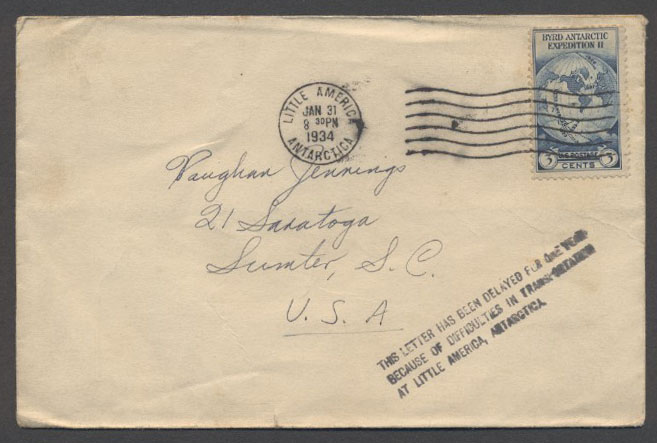 BYRD ANTARCTIC
EXPEDITION II
3 U.S. POSTAGE 3
CENTS
LITTLE AMERICA
JAN 31
8 30 PM
1934
ANTARCTICA
Vaughan Jennings
21 Saratoga
Sumter, S. C.
U. S. A
THIS LETTER HAS BEEN DELAYED FOR ONE YEAR
BECAUSE OF DIFFICULTIES IN TRANSPORTATION
AT LITTLE AMERICA, ANTARCTICA.